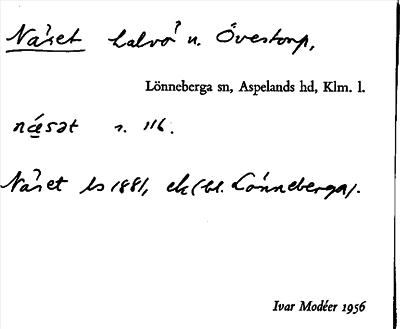 Näset halvö n. Övestorp,
Lönneberga sn, Aspelands hd, Klm. l.
nǽ̱sət s. 116.
Näset ls 1881, ek (bl. Lönneberga).
Ivar Modéer 1956